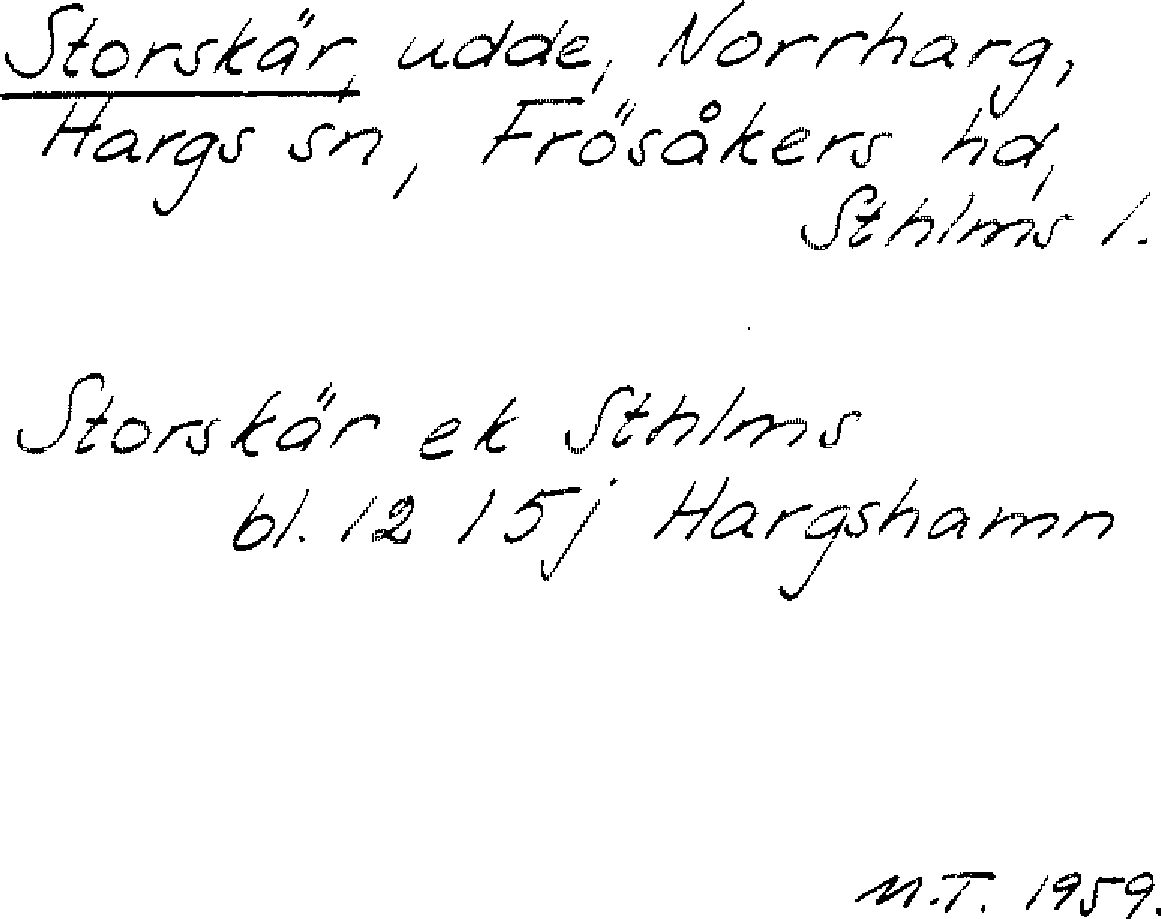 Storskär, udde, Norrharg,
Hargs sn, Frösåkers hd,
Sthlms l.
Storskär ek Sthlms
bl. 12 I 5j Hargshamn
M.T. 1959.